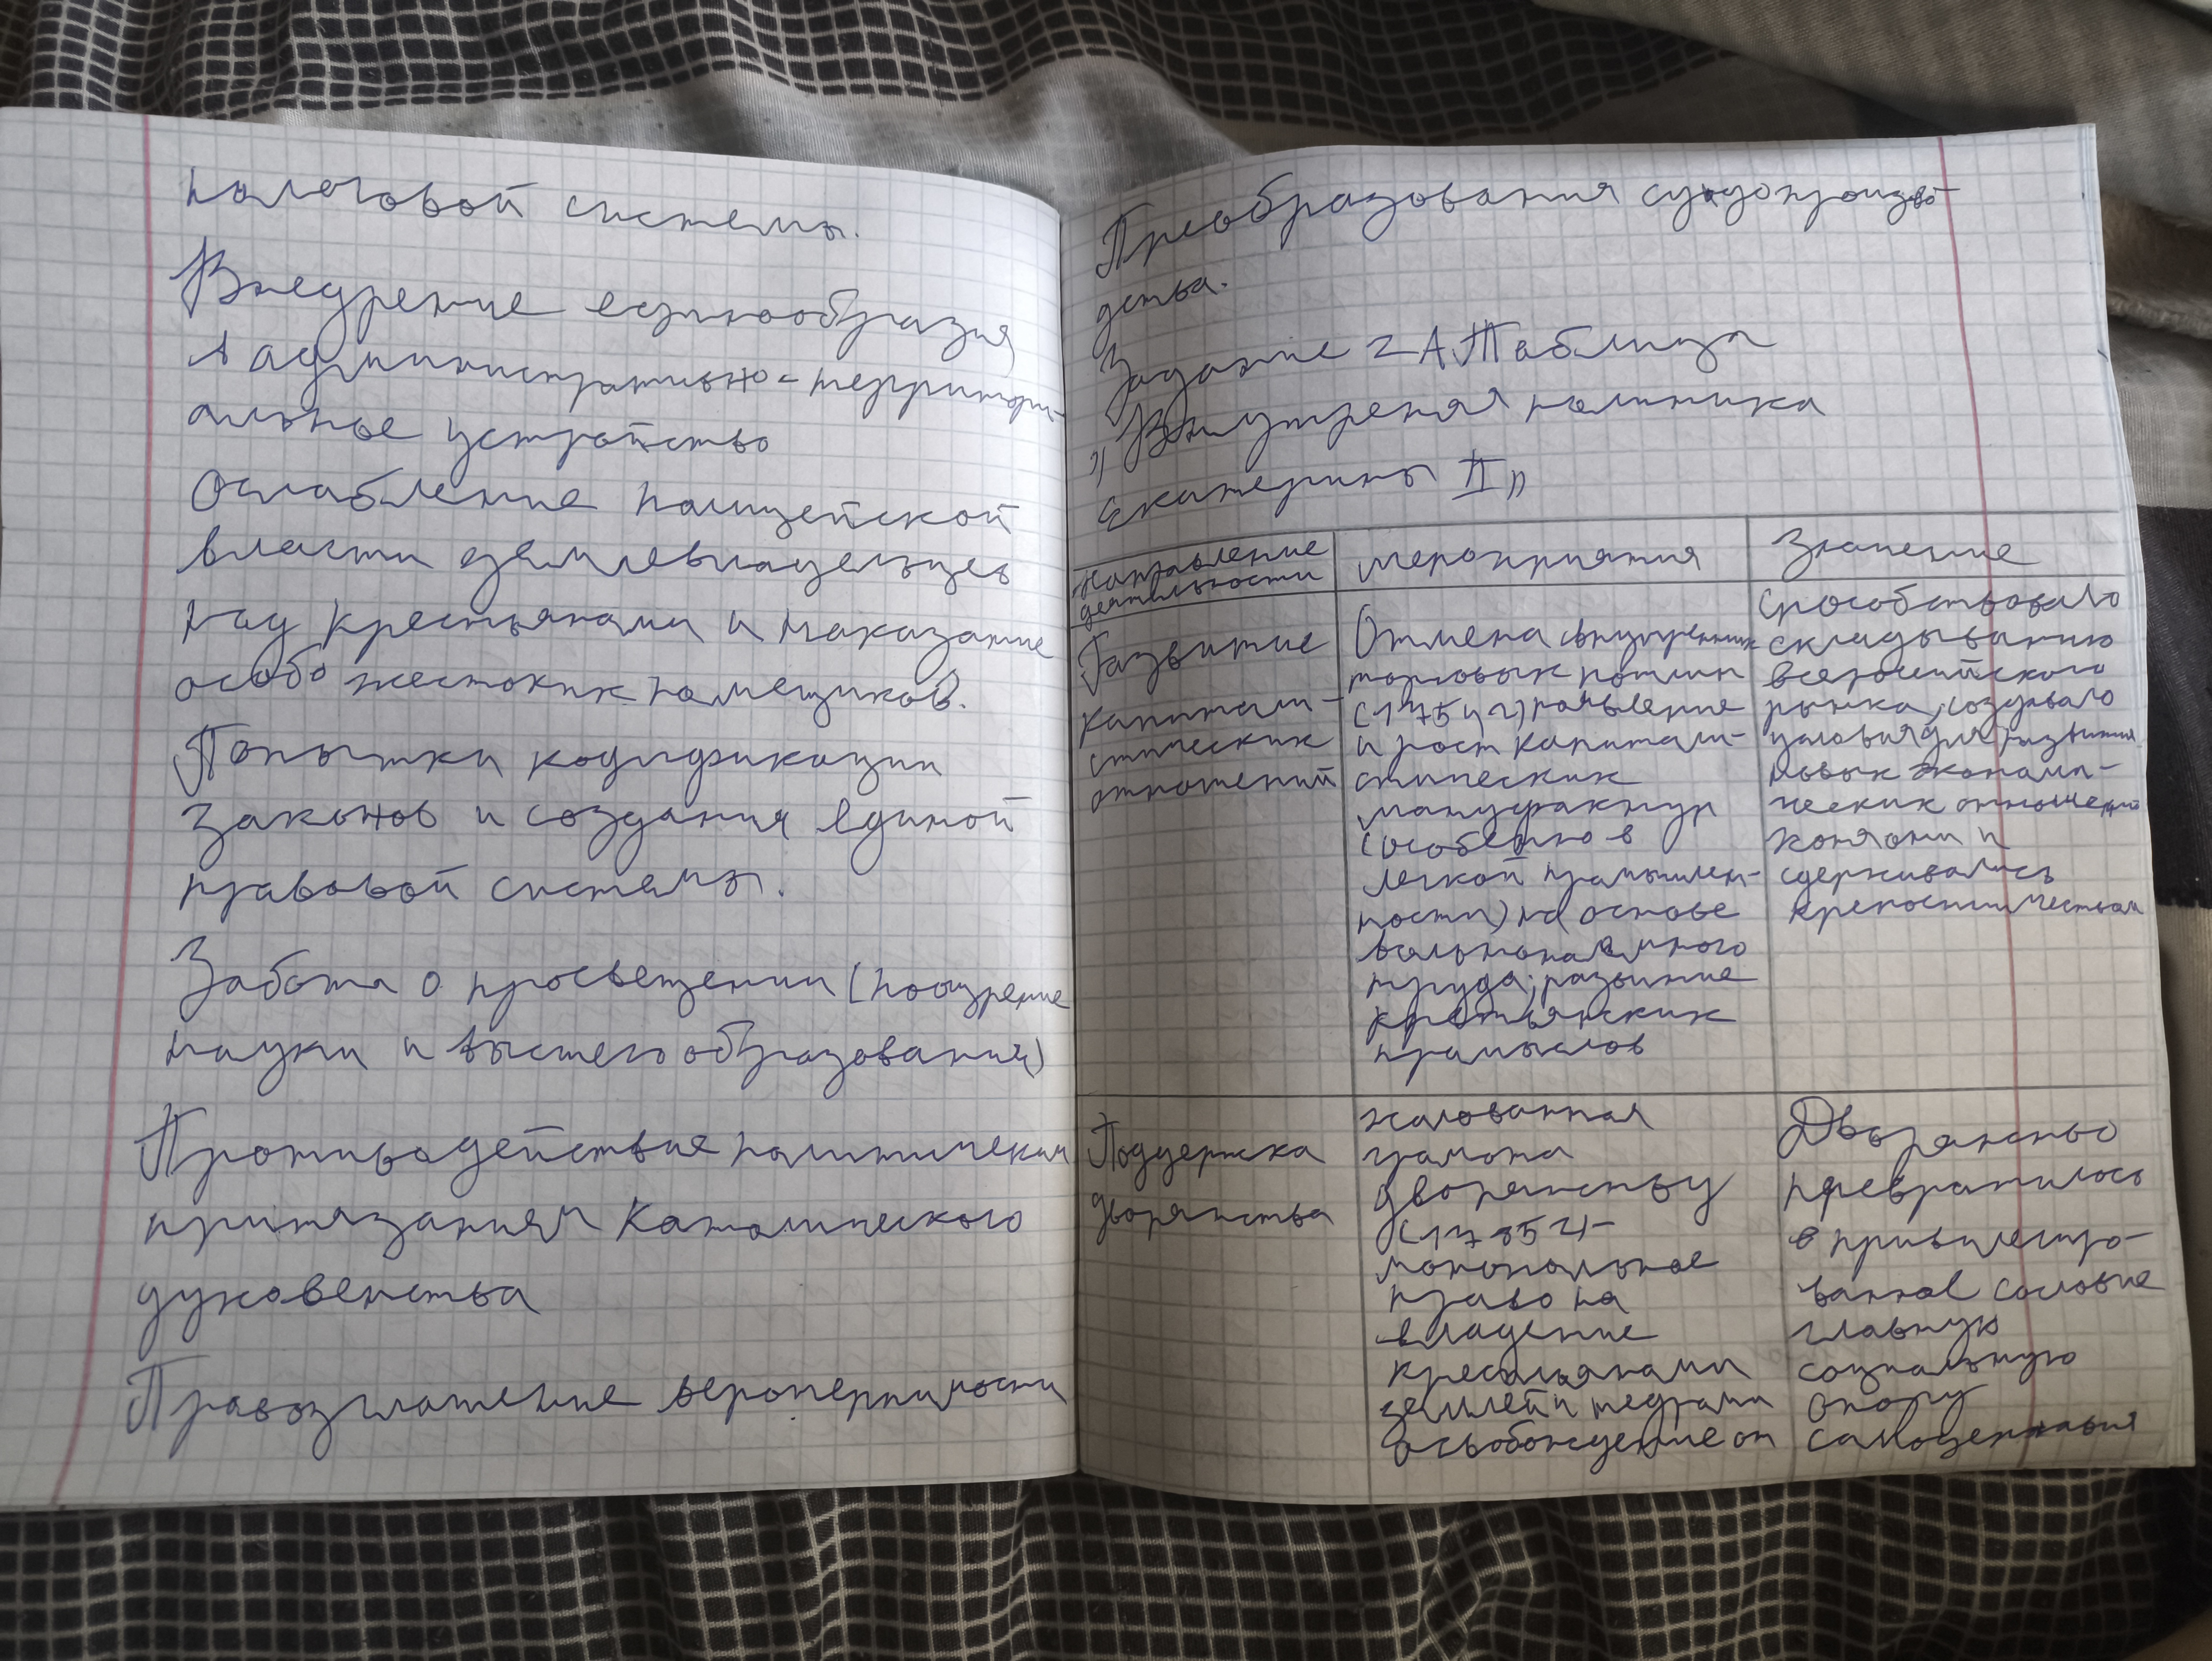 налоговой системы.
Внедрение единообразия
в административно-территори-
альное устройство
Ослабление полицейской
власти землевладельцев
над крестьянами и наказание
особо жестоких помещиков.
Попытки кодификации
законов и создания единой
правовой системы.
Забота о просвещении (поощрение
науки и высшего образования)
Противодействие политическим
притязаниям Католического
духовенства
Провозглашение веротерпимости
Преобразования судопроизво-
дства.
Задание 2 А. Таблица
"Внутреняя политика
Екатерины II"
Направление
деятельности
мероприятия
Значение
Развитие
капитали-
стических
отношений
Отмена внутренних
торговых пошлин
(1754 г) появление
и рост капитали-
стических
мануфактур
(особенно в
легкой промышлен-
ности) на основе
вольнонаемного
труда; развитие
крестьянских
промыслов
Способствовало
складыванию
всероссийского
рынка, создавало
условия для развития
новых экономи-
ческих отношений
хотя они и
сдерживались
крепостничеством
Поддержка
дворянства
жалованная
грамота
дворянству
(1785 г)-
монопольное
право на
владение
крестьянами
землей и недрами
освобождение от
Дворянство
превратилось
в привилегиро-
ванное сословие
главную
социальную
опору
самодержавия